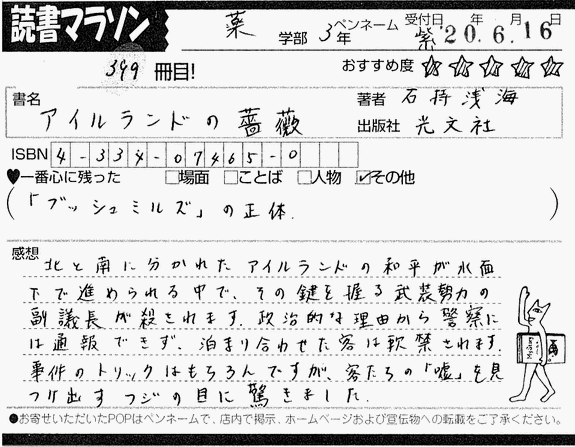 読書マラソン
薬 学部 3年 ペンネーム 紫 受付日 '20.6.16 年 月 日
399 冊目! おすすめ度 ☆☆☆☆☆
書名 アイルランドの薔薇
著者 石持浅海
出版社 光文社
ISBN 4-334-07465-0
♥一番心に残った □場面 □ことば □人物 ☑その他
(「ブッシュミルズ」の正体.)
感想
北と南に分かれたアイルランドの和平が水面
下で進められる中で、その鍵を握る武装勢力の
副議長が殺されます.政治的な理由から警察に
は通報できず、泊まり合わせた客は軟禁されます.
事件のトリックはもちろんですが、客たちの「嘘」を見
つけ出すフジの目に驚きました.
●お寄せいただいたPOPはペンネームで、店内で掲示、ホームページおよび宣伝物への転載をご了承ください。